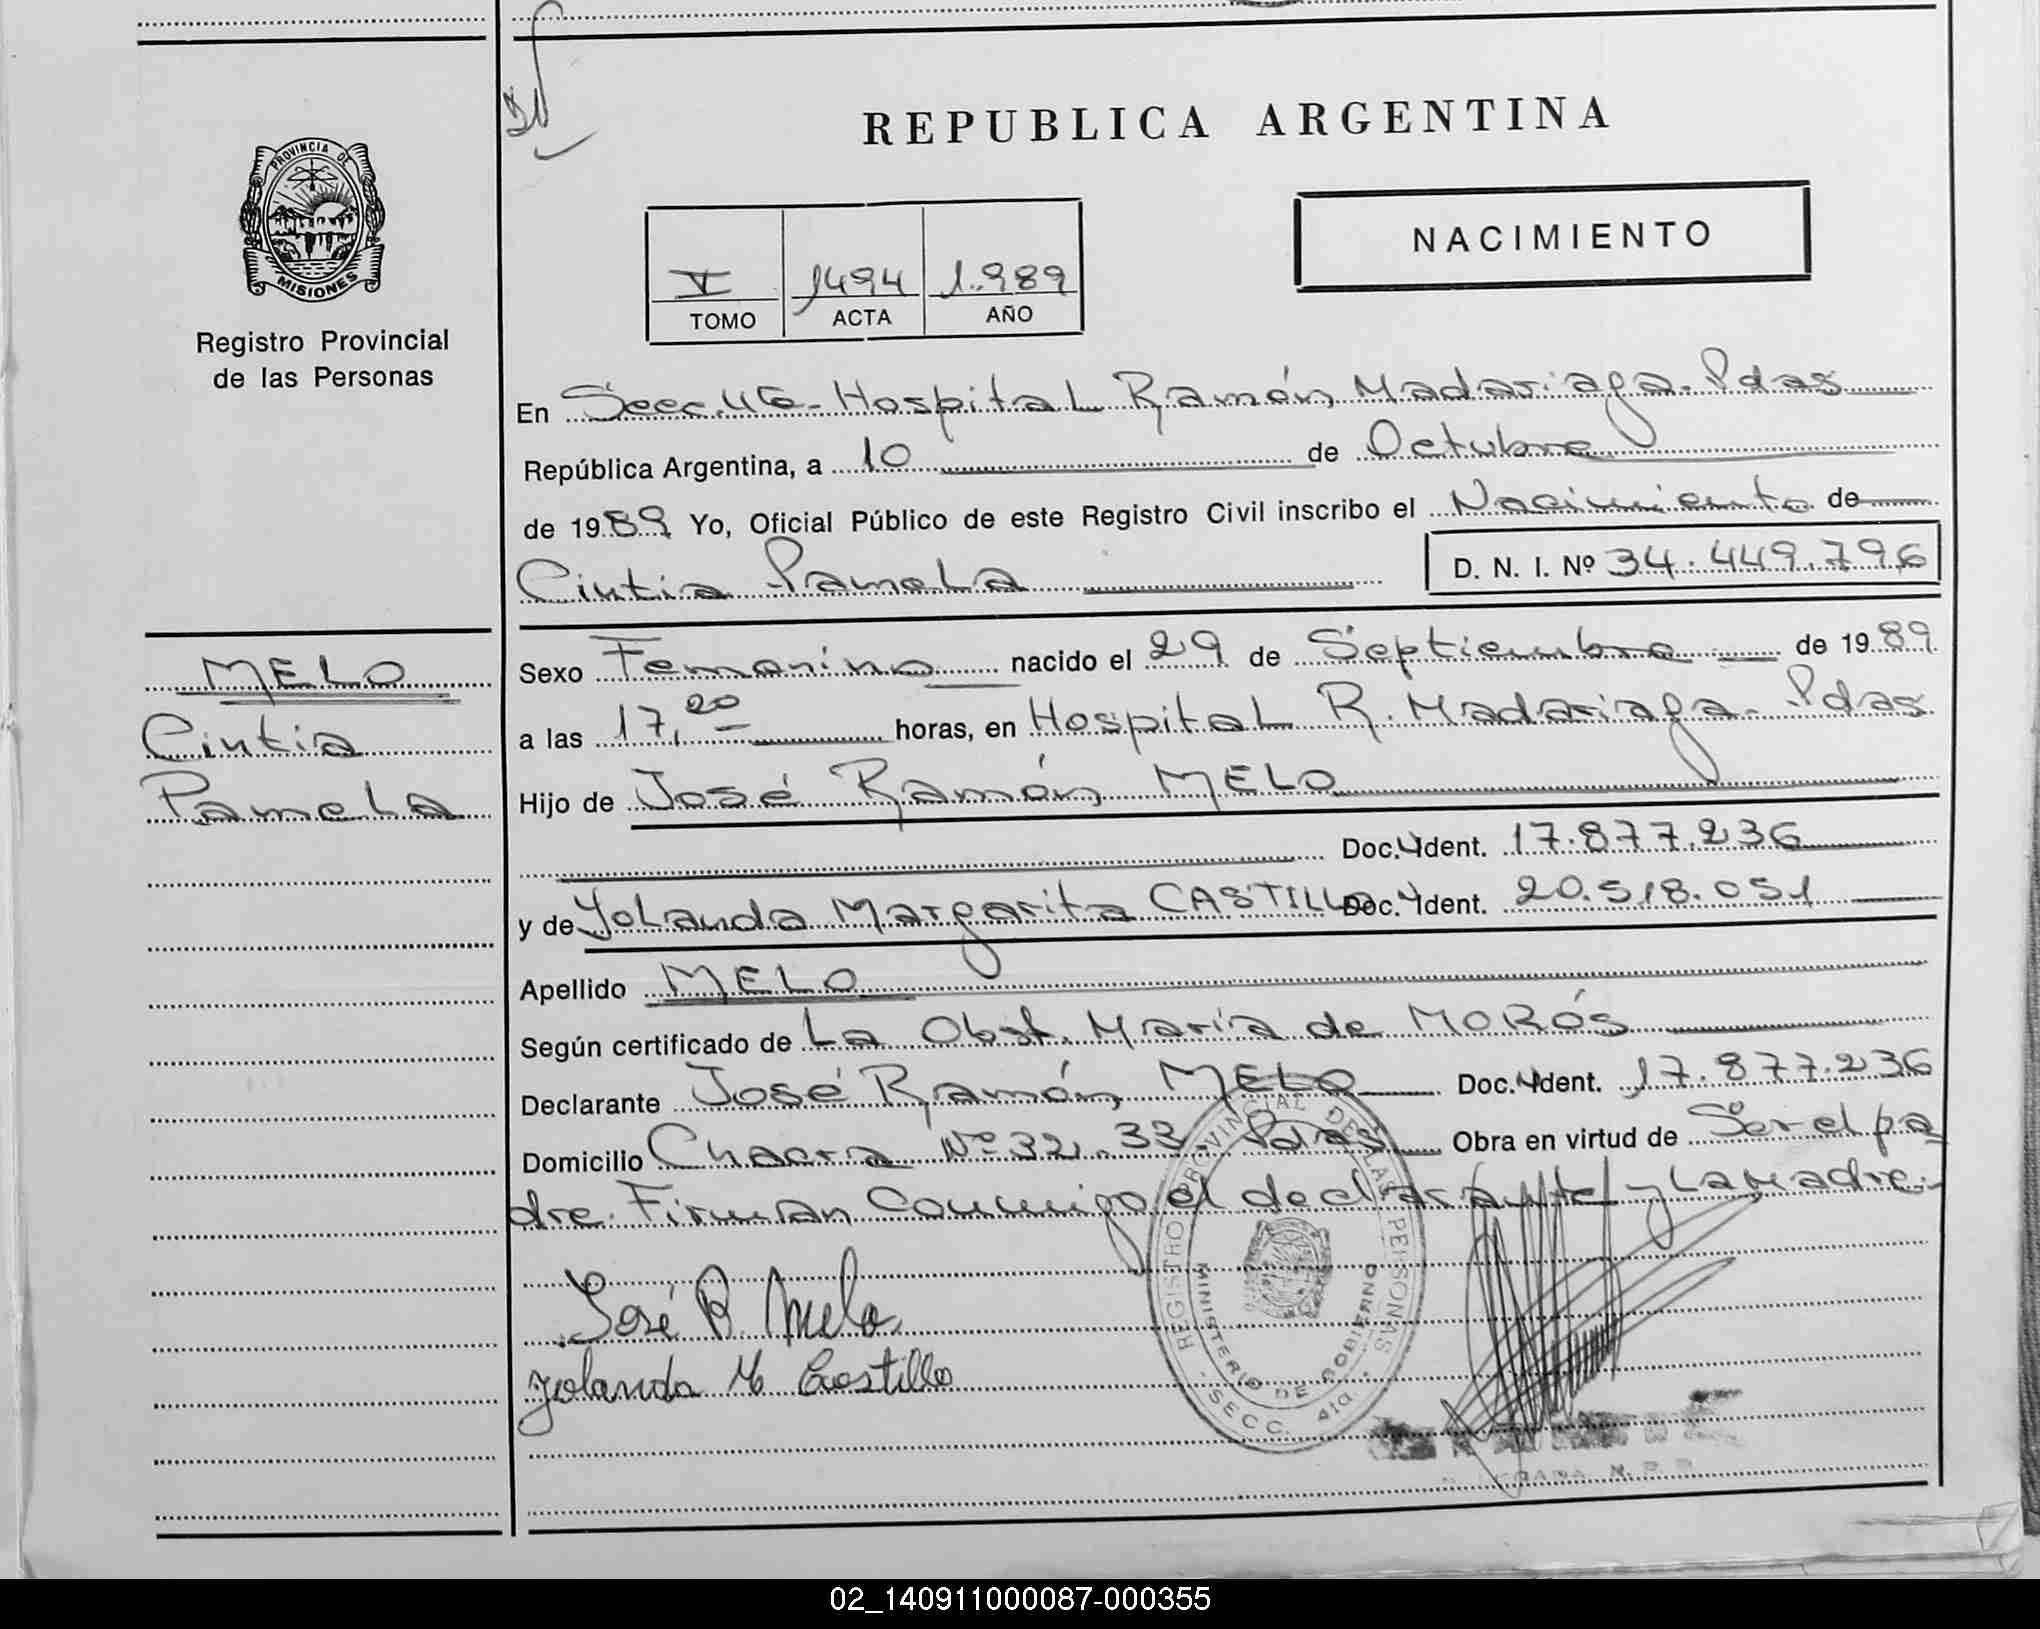 REPUBLICA ARGENTINA
PROVINCIA DE
MISIONES
Registro Provincial
de las Personas
NACIMIENTO
V 1494 1.989
TOMO ACTA AÑO
En Secc. 4ta- Hospital Ramón Madariaga- Pdas
República Argentina, a 10 de Octubre
de 1989 Yo, Oficial Público de este Registro Civil inscribo el Nacimiento de
Cintia Pamela D. N. I. Nº 34.449.796
MELO
Cintia
Pamela
Sexo Femenino nacido el 29 de Septiembre de 1989
a las 17,20 horas, en Hospital R. Madariaga- Pdas
Hijo de José Ramón MELO
Doc. Ident. 17.877.236
y de Yolanda Margarita CASTILLO Doc. Ident. 20.518.051
Apellido MELO
Según certificado de La Obst. María de MORÓS
Declarante José Ramón MELO Doc. Ident. 17.877.236
Domicilio Chacra Nº 32. 33 Pdas Obra en virtud de Ser el pa
dre. Firman Conmigo el declarante y La Madre.-
José R Melo
Yolanda M Castillo
REGISTRO PROVINCIAL DE LAS PERSONAS
MINISTERIO DE GOBIERNO
- SECC. 4ta. -
02_140911000087-000355